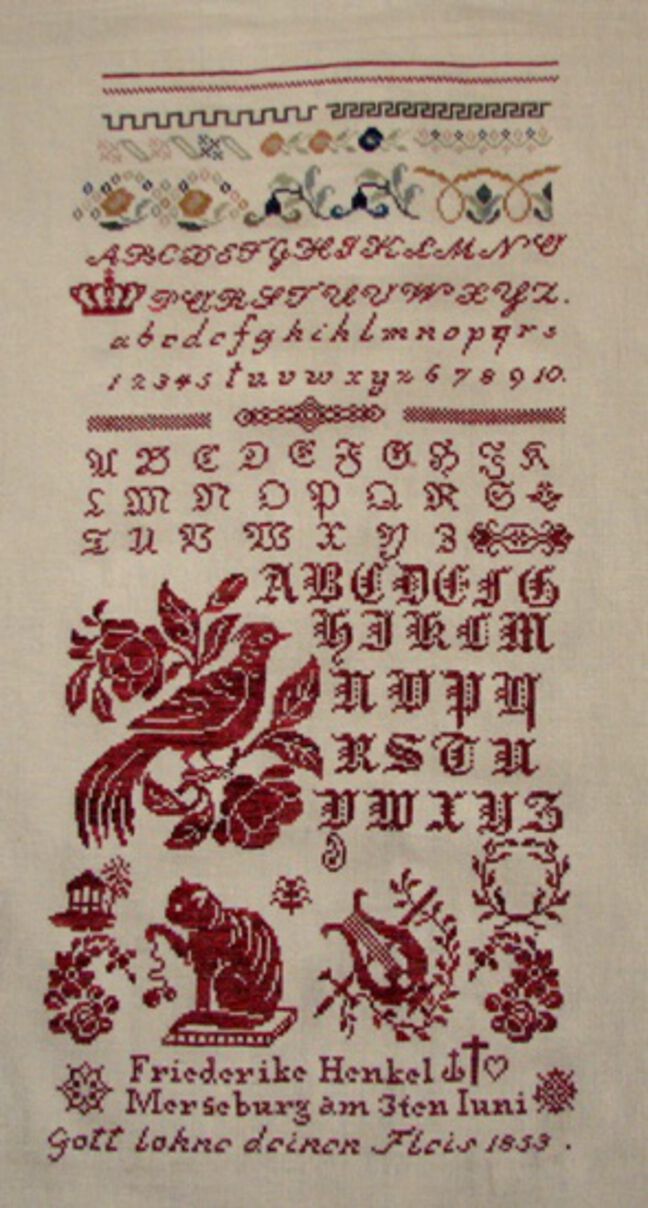 A B C D E F G H I K L M N O
P Q R S T U V W X Y Z.
a b c d e f g h i k l m n o p q r s
1 2 3 4 5 t u v w x y z 6 7 8 9 10.
A B C D E F G H I K
L M N O P Q R S
T U V W X Y Z
A B C D E F G
H I K L M
N O P Q
R S T U
V W X Y Z
Friederike Henkel
Merseburg am 3ten Iuni
Gott lohne deinen Fleis 1853 .